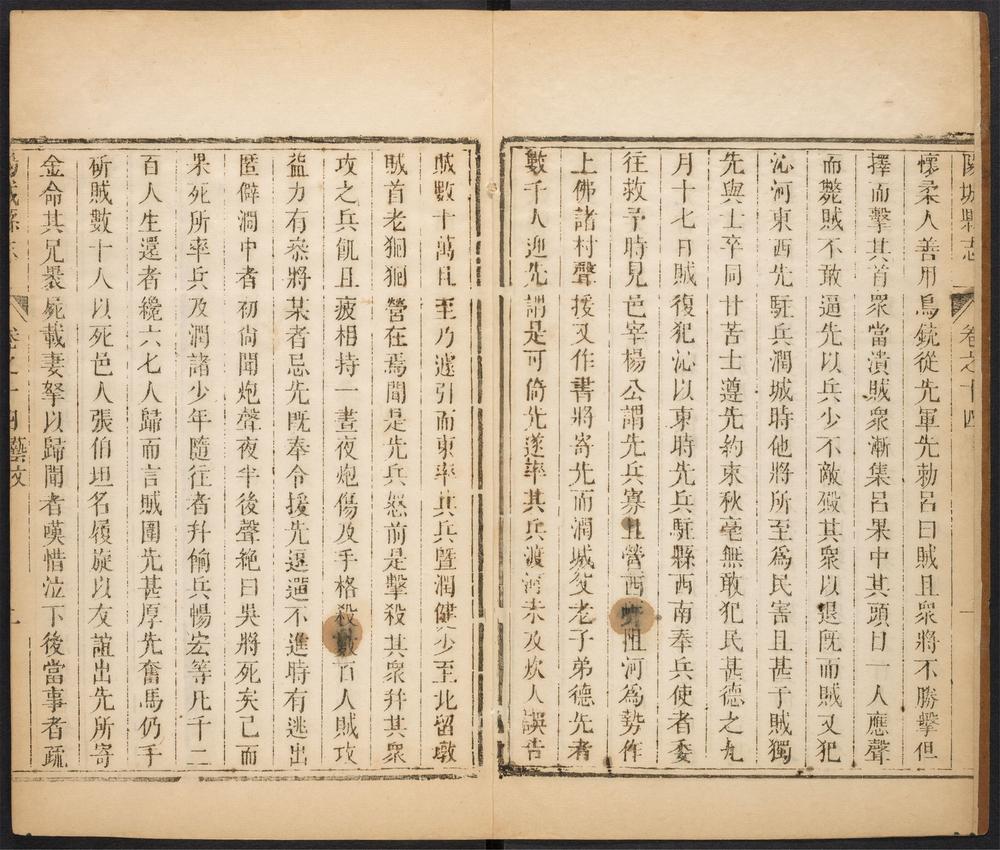 陽城縣志 卷之十四 一
懷柔人善用鳥銃從先軍先勅呂曰賊且衆將不勝擊但
擇而擊其首衆當潰賊衆漸集呂果中其頭目一人應聲
而斃賊不敢逼先以兵少不敵殿其衆以退既而賊又犯
沁河東西先駐兵潤城時他將所至爲民害且甚于賊獨
先與士卒同甘苦士遵先約束秋毫無敢犯民甚德之九
月十七日賊復犯沁以東時先兵駐縣西南奉兵使者委
往救予時見邑宰楊公謂先兵寡且營西阻河爲勢作
上佛諸村聲援又作書將寄先而潤城父老子弟德先者
數千人迎先謂是可倚先遂率其兵渡河未及炊人誤告
賊數十萬且至乃遽引而東率其兵暨潤健少至北留墩
賊首老𤞑𤞑營在焉聞是先兵怒前是擊殺其衆幷其衆
攻之兵飢且疲相持一晝夜炮傷及手格殺數百人賊攻
益力有叅將某者忌先既奉令援先逗遛不進時有逃出
匿僻澗中者初尙聞炮聲夜半後聲絶曰吳將死矣已而
果死所率兵及潤諸少年隨往者幷偷兵暢宏等凡千二
百人生還者纔六七人歸而言賊圍先甚厚先奮馬仍手
斫賊數十人以死邑人張伯坦名履旋以友誼出先所寄
金命其兄褁屍載妻孥以歸聞者嘆惜泣下後當事者疏
陽城縣志 卷之十四 藝文 十